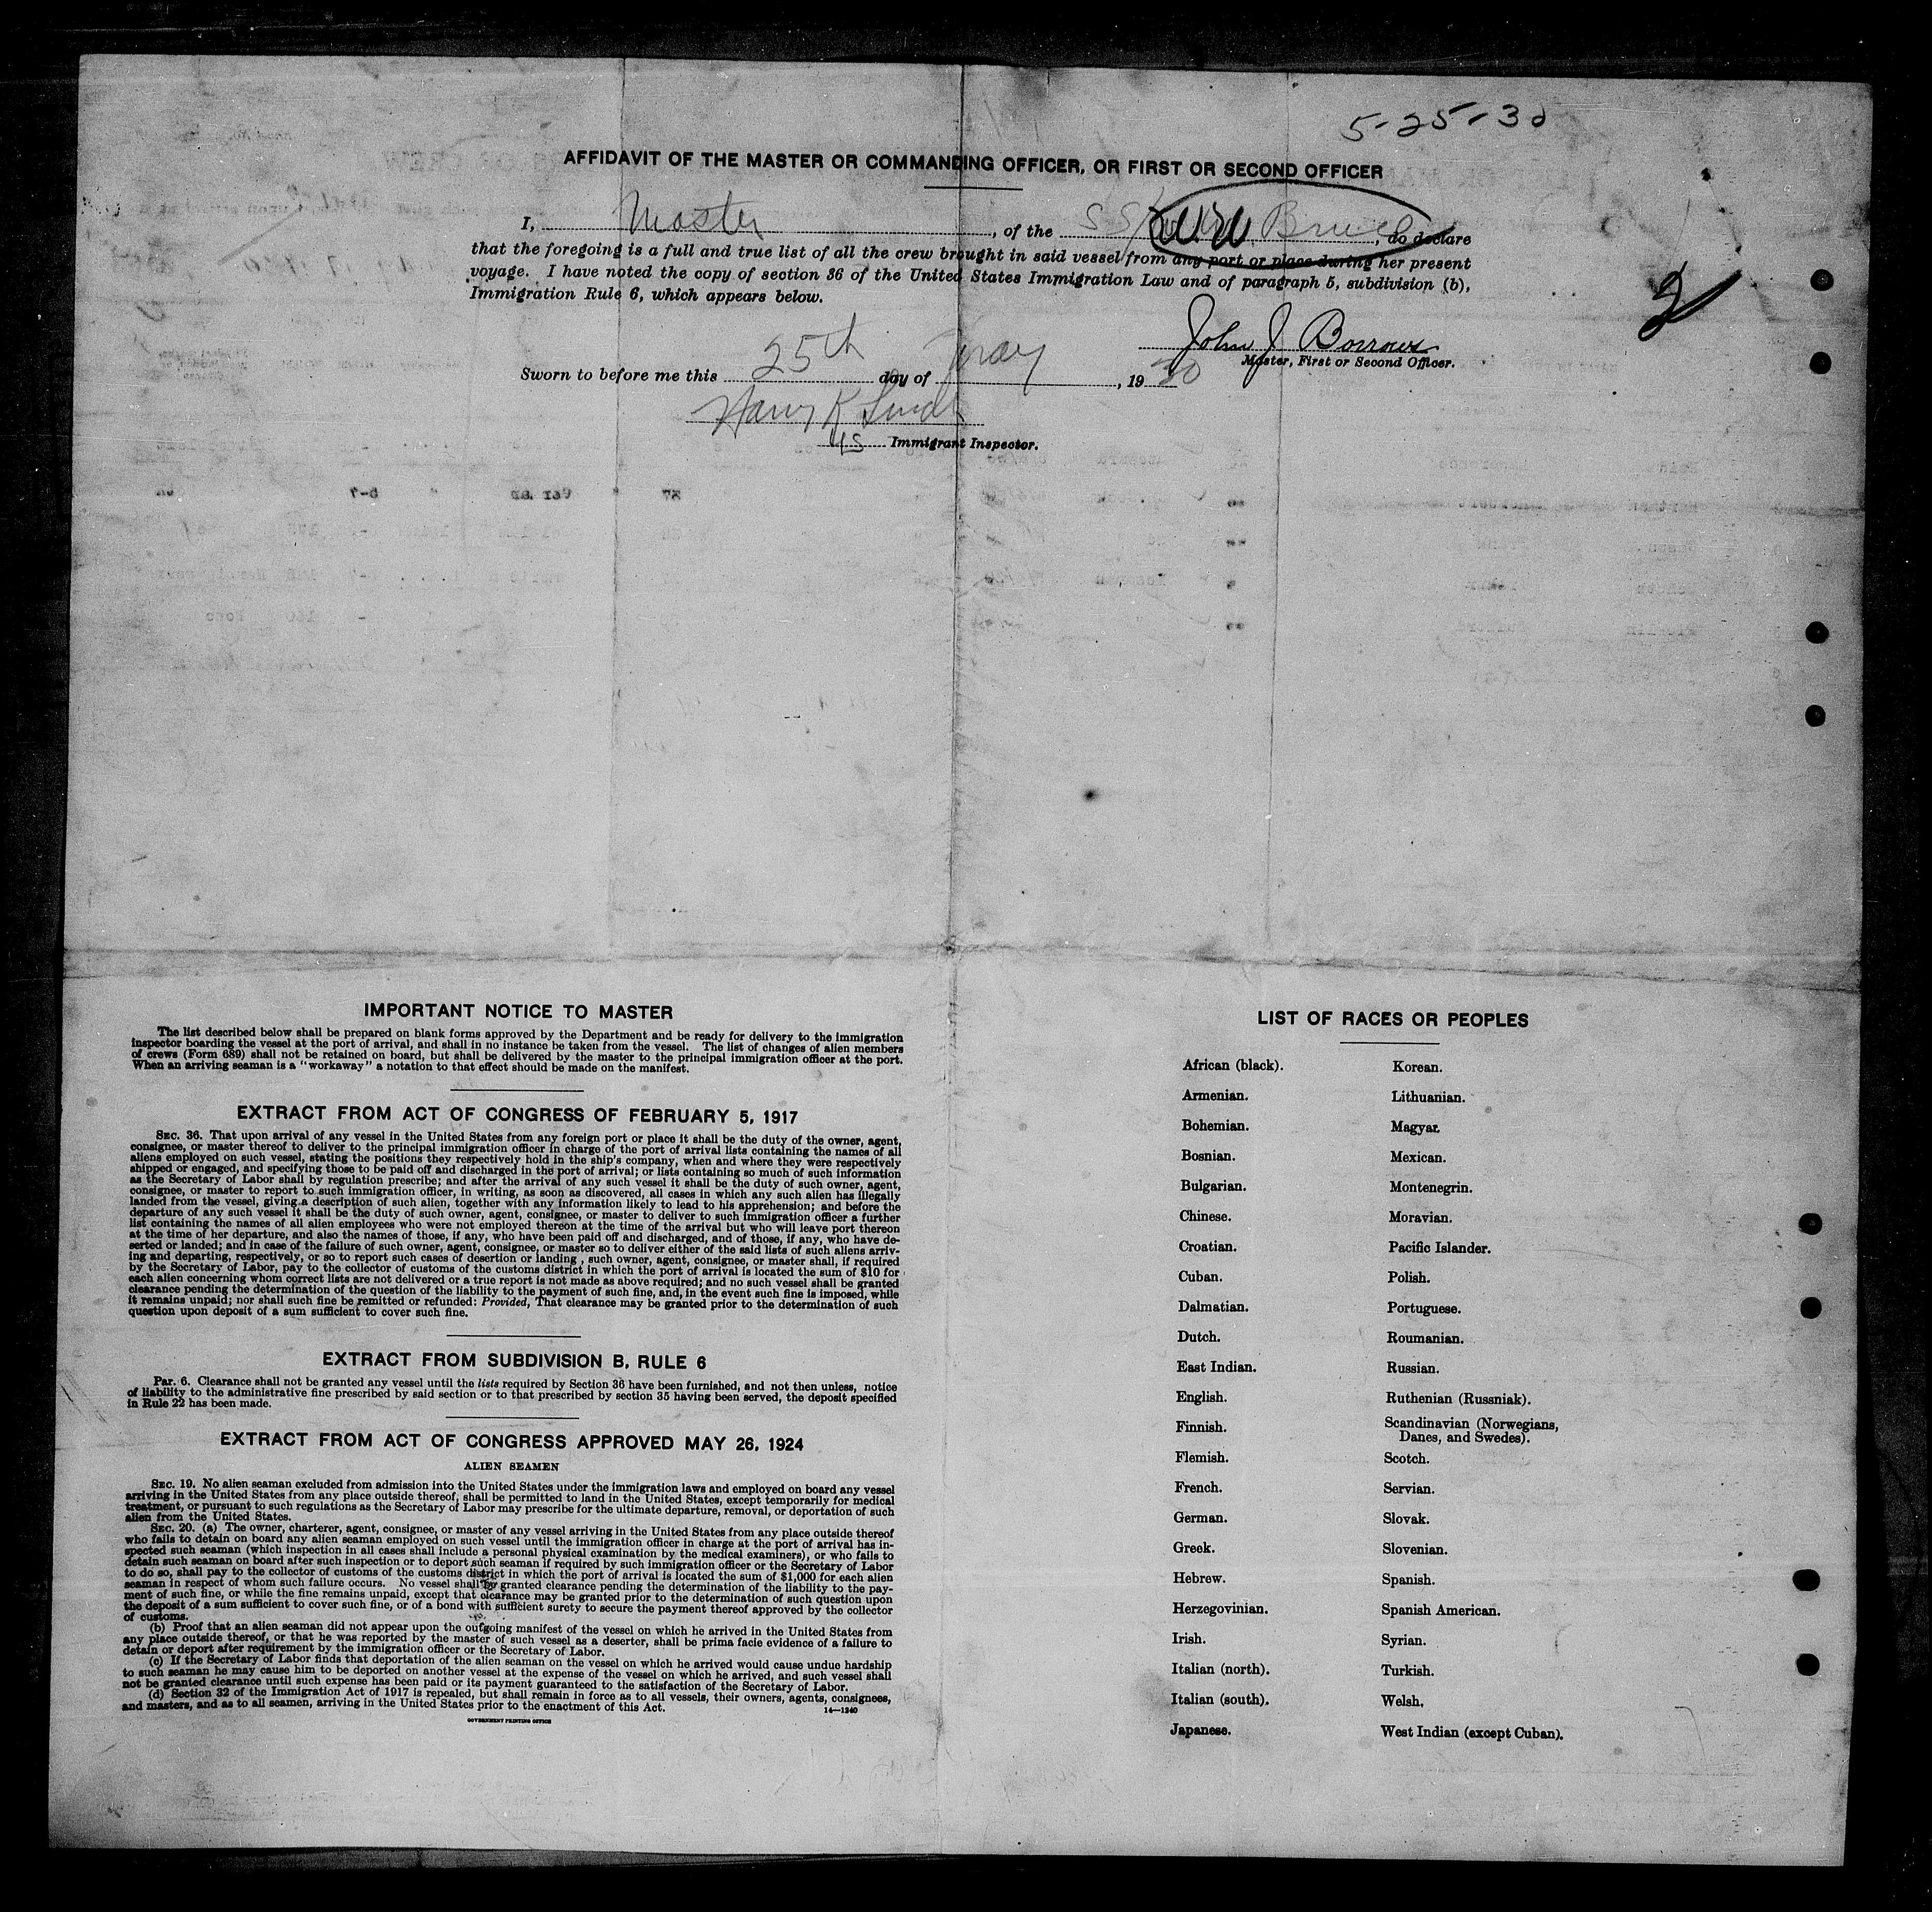 5-25-30
AFFIDAVIT OF THE MASTER OR COMMANDING OFFICER, OR FIRST OR SECOND OFFICER
I, Master, of the SS W. W. Bruce, do declare
that the foregoing is a full and true list of all the crew brought in said vessel from any port or place during her present
voyage. I have noted the copy of section 36 of the United States Immigration Law and of paragraph 5, subdivision (b),
Immigration Rule 6, which appears below.
2
John J Borrows
Master, First or Second Officer.
Sworn to before me this 25th day of May, 1930
Harry K
US Immigrant Inspector.
IMPORTANT NOTICE TO MASTER
The list described below shall be prepared on blank forms approved by the Department and be ready for delivery to the immigration
inspector boarding the vessel at the port of arrival, and shall in no instance be taken from the vessel. The list of changes of alien members
of crews (Form 689) shall not be retained on board, but shall be delivered by the master to the principal immigration officer at the port.
When an arriving seaman is a "workaway" a notation to that effect should be made on the manifest.
EXTRACT FROM ACT OF CONGRESS OF FEBRUARY 5, 1917
SEC. 36. That upon arrival of any vessel in the United States from any foreign port or place it shall be the duty of the owner, agent,
consignee, or master thereof to deliver to the principal immigration officer in charge of the port of arrival lists containing the names of all
aliens employed on such vessel, stating the positions they respectively hold in the ship's company, when and where they were respectively
shipped or engaged, and specifying those to be paid off and discharged in the port of arrival; or lists containing so much of such information
as the Secretary of Labor shall by regulation prescribe; and after the arrival of any such vessel it shall be the duty of such owner, agent,
consignee, or master to report to such immigration officer, in writing, as soon as discovered, all cases in which any such alien has illegally
landed from the vessel, giving a description of such alien, together with any information likely to lead to his apprehension; and before the
departure of any such vessel it shall be the duty of such owner, agent, consignee, or master to deliver to such immigration officer a further
list containing the names of all alien employees who were not employed thereon at the time of the arrival but who will leave port thereon
at the time of her departure, and also the names of those, if any, who have been paid off and discharged, and of those, if any, who have de-
serted or landed; and in case of the failure of such owner, agent, consignee, or master so to deliver either of the said lists of such aliens arriv-
ing and departing, respectively, or so to report such cases of desertion or landing, such owner, agent, consignee, or master shall, if required
by the Secretary of Labor, pay to the collector of customs of the customs district in which the port of arrival is located the sum of $10 for
each alien concerning whom correct lists are not delivered or a true report is not made as above required; and no such vessel shall be granted
clearance pending the determination of the question of the liability to the payment of such fine, and, in the event such fine is imposed, while
it remains unpaid; nor shall such fine be remitted or refunded: Provided, That clearance may be granted prior to the determination of such
question upon deposit of a sum sufficient to cover such fine.
EXTRACT FROM SUBDIVISION B, RULE 6
Par. 6. Clearance shall not be granted any vessel until the lists required by Section 36 have been furnished, and not then unless, notice
of liability to the administrative fine prescribed by said section or to that prescribed by section 35 having been served, the deposit specified
in Rule 22 has been made.
EXTRACT FROM ACT OF CONGRESS APPROVED MAY 26, 1924
ALIEN SEAMEN
SEC. 19. No alien seaman excluded from admission into the United States under the immigration laws and employed on board any vessel
arriving in the United States from any place outside thereof, shall be permitted to land in the United States, except temporarily for medical
treatment, or pursuant to such regulations as the Secretary of Labor may prescribe for the ultimate departure, removal, or deportation of such
alien from the United States.
SEC. 20. (a) The owner, charterer, agent, consignee, or master of any vessel arriving in the United States from any place outside thereof
who fails to detain on board any alien seaman employed on such vessel until the immigration officer in charge at the port of arrival has in-
spected such seaman (which inspection in all cases shall include a personal physical examination by the medical examiners), or who fails to
detain such seaman on board after such inspection or to deport such seaman if required by such immigration officer or the Secretary of Labor
to do so, shall pay to the collector of customs of the customs district in which the port of arrival is located the sum of $1,000 for each alien
seaman in respect of whom such failure occurs. No vessel shall be granted clearance pending the determination of the liability to the pay-
ment of such fine, or while the fine remains unpaid, except that clearance may be granted prior to the determination of such question upon
the deposit of a sum sufficient to cover such fine, or of a bond with sufficient surety to secure the payment thereof approved by the collector
of customs.
(b) Proof that an alien seaman did not appear upon the outgoing manifest of the vessel on which he arrived in the United States from
any place outside thereof, or that he was reported by the master of such vessel as a deserter, shall be prima facie evidence of a failure to
detain or deport after requirement by the immigration officer or the Secretary of Labor.
(c) If the Secretary of Labor finds that deportation of the alien seaman on the vessel on which he arrived would cause undue hardship
to such seaman he may cause him to be deported on another vessel at the expense of the vessel on which he arrived, and such vessel shall
not be granted clearance until such expense has been paid or its payment guaranteed to the satisfaction of the Secretary of Labor.
(d) Section 32 of the Immigration Act of 1917 is repealed, but shall remain in force as to all vessels, their owners, agents, consignees,
and masters, and as to all seamen, arriving in the United States prior to the enactment of this Act.
14—1240
GOVERNMENT PRINTING OFFICE
LIST OF RACES OR PEOPLES
African (black).
Armenian.
Bohemian.
Bosnian.
Bulgarian.
Chinese.
Croatian.
Cuban.
Dalmatian.
Dutch.
East Indian.
English.
Finnish.
Flemish.
French.
German.
Greek.
Hebrew.
Herzegovinian.
Irish.
Italian (north).
Italian (south).
Japanese.
Korean.
Lithuanian.
Magyar.
Mexican.
Montenegrin.
Moravian.
Pacific Islander.
Polish.
Portuguese.
Roumanian.
Russian.
Ruthenian (Russniak).
Scandinavian (Norwegians,
Danes, and Swedes).
Scotch.
Servian.
Slovak.
Slovenian.
Spanish.
Spanish American.
Syrian.
Turkish.
Welsh.
West Indian (except Cuban).